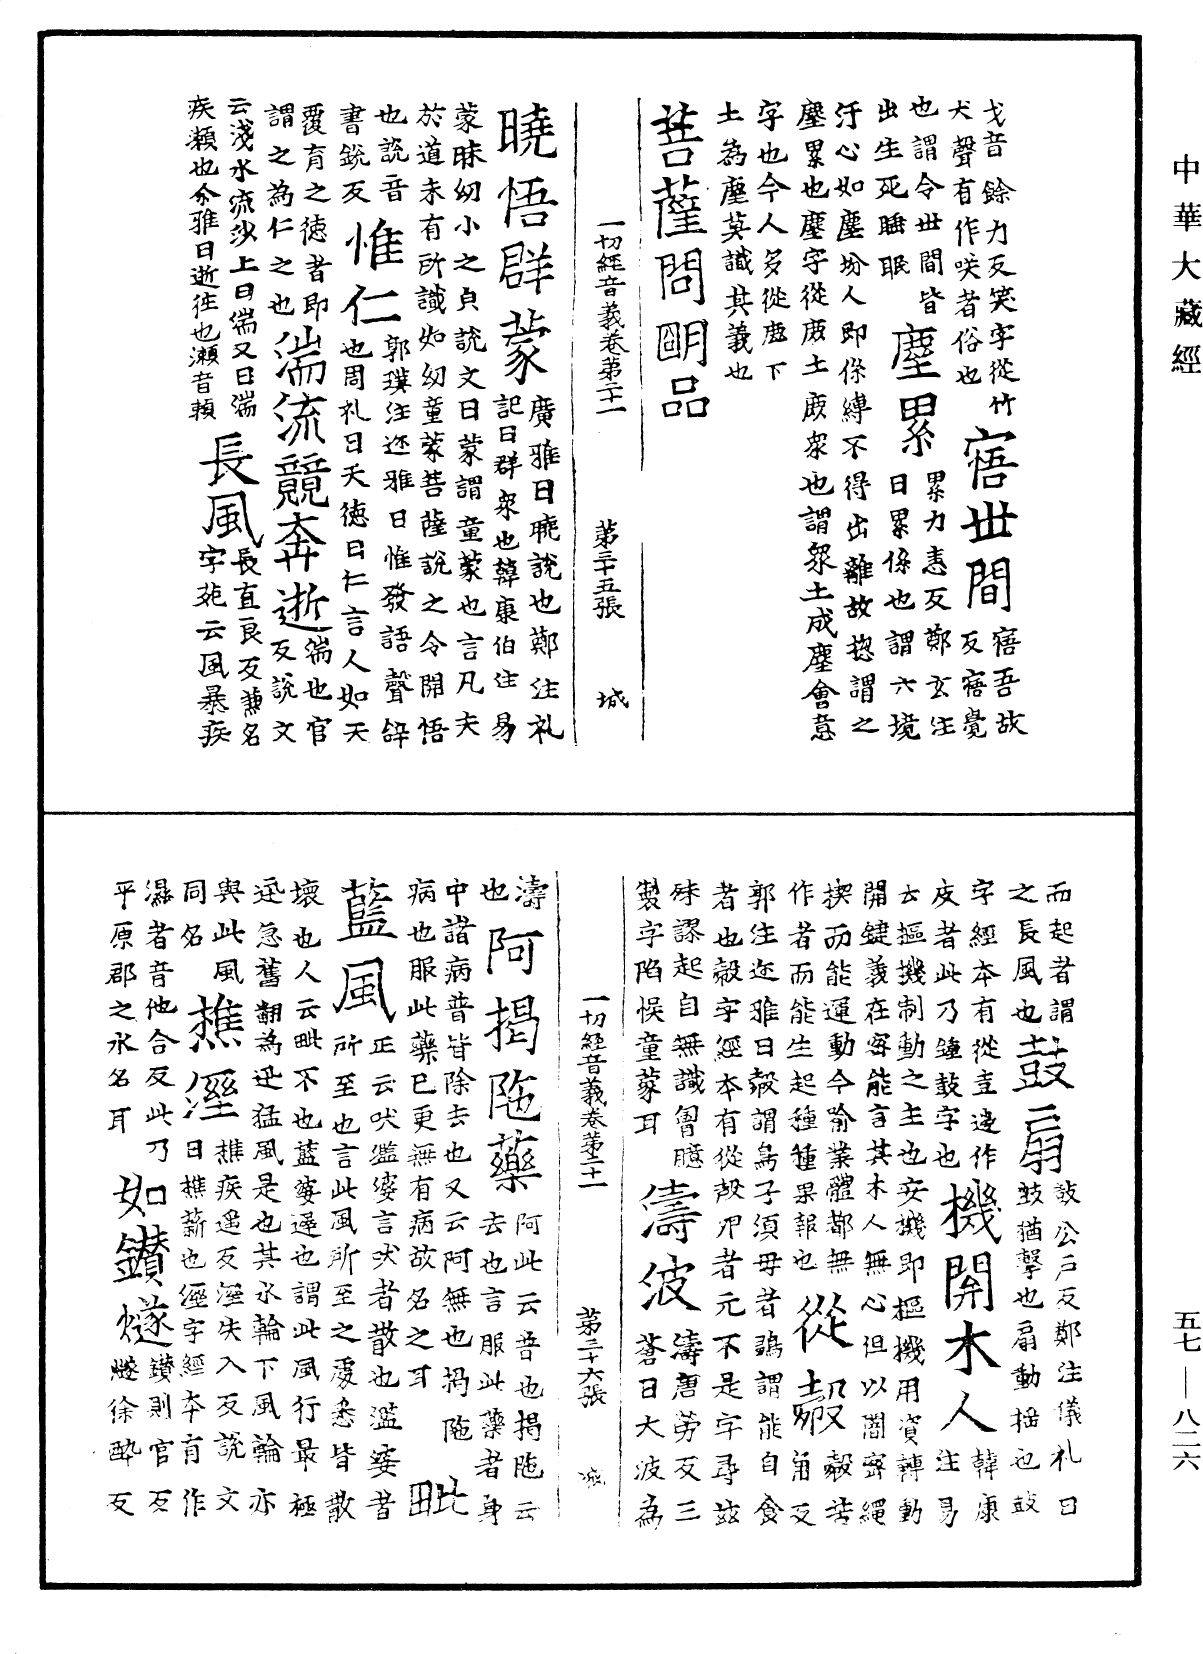 中華大藏經
戈音餘力反笑字從竹
犬聲有作咲者俗也
寤世間
寤吾故
反寤覺
也謂令世間皆
出生死睡眠
塵累
累力恚反鄭玄注
曰累係也謂六境
汙心如塵坌人即係縛不得出離故揔謂之
塵累也塵字從鹿土鹿衆也謂衆土成塵會意
字也今人多從鹿下
土為塵莫識其義也
菩薩問明品
一切經音義卷第二十一
第三十五張
城
曉悟群蒙
廣雅曰曉說也鄭注礼
記曰群衆也韓康伯注易
蒙昧幼小之貞說文曰蒙謂童蒙也言凡夫
於道未有所識如幼童蒙菩薩說之令開悟
也說音
書銳反
惟仁
郭璞注迩雅曰惟發語聲辝
也周礼曰天德曰仁言人如天
覆育之德者即
謂之為仁之也
湍流競奔逝
湍也官
反說文
云淺水流沙上曰湍又曰湍
疾瀨也尒雅曰逝往也瀨音頼
長風
長直良反兼名
字苑云風暴疾
而起者謂
之長風也
鼓扇
鼓公戶反鄭注儀礼曰
鼓猶擊也扇動揺也鼓
字經本有從壴邊作
皮者此乃鍾鼓字也
機關木人
韓康
注易
云樞機制動之主也安機即樞機用資轉動
開鍵義在密能言其木人無心但以闇密繩
揳而能運動今喻業體都無
作者而能生起種種果報也
從㲉
㲉苦
角反
郭注迩雅曰㲉謂鳥子須母者鷄謂能自食
者也㲉字經本有從殼卵者元不是字尋兹
殊謬起自無識胷臆
製字陷悞童蒙耳
濤波
濤唐勞反三
蒼曰大波為
一切經音義卷第二十一
第三十六張
城
濤
也
阿揭陁藥
阿此云普也揭陁云
去也言服此藥者身
中諸病普皆除去也又云阿無也揭陁
病也服此藥已更無有病故名之耳
毗
藍風
正云吠濫婆言吠者散也濫婆者
所至也言此風所至之處悉皆散
壞也人云毗不也藍婆遲也謂此風行最極
迅急舊翻為迅猛風是也其水輪下風輪亦
與此風
同名
樵溼
樵疾遥反溼失入反說文
曰樵薪也溼字經本有作
濕者音他合反此乃
平原郡之水名耳
如鑚燧
鑚則官反
燧徐醉反
五七—八二六